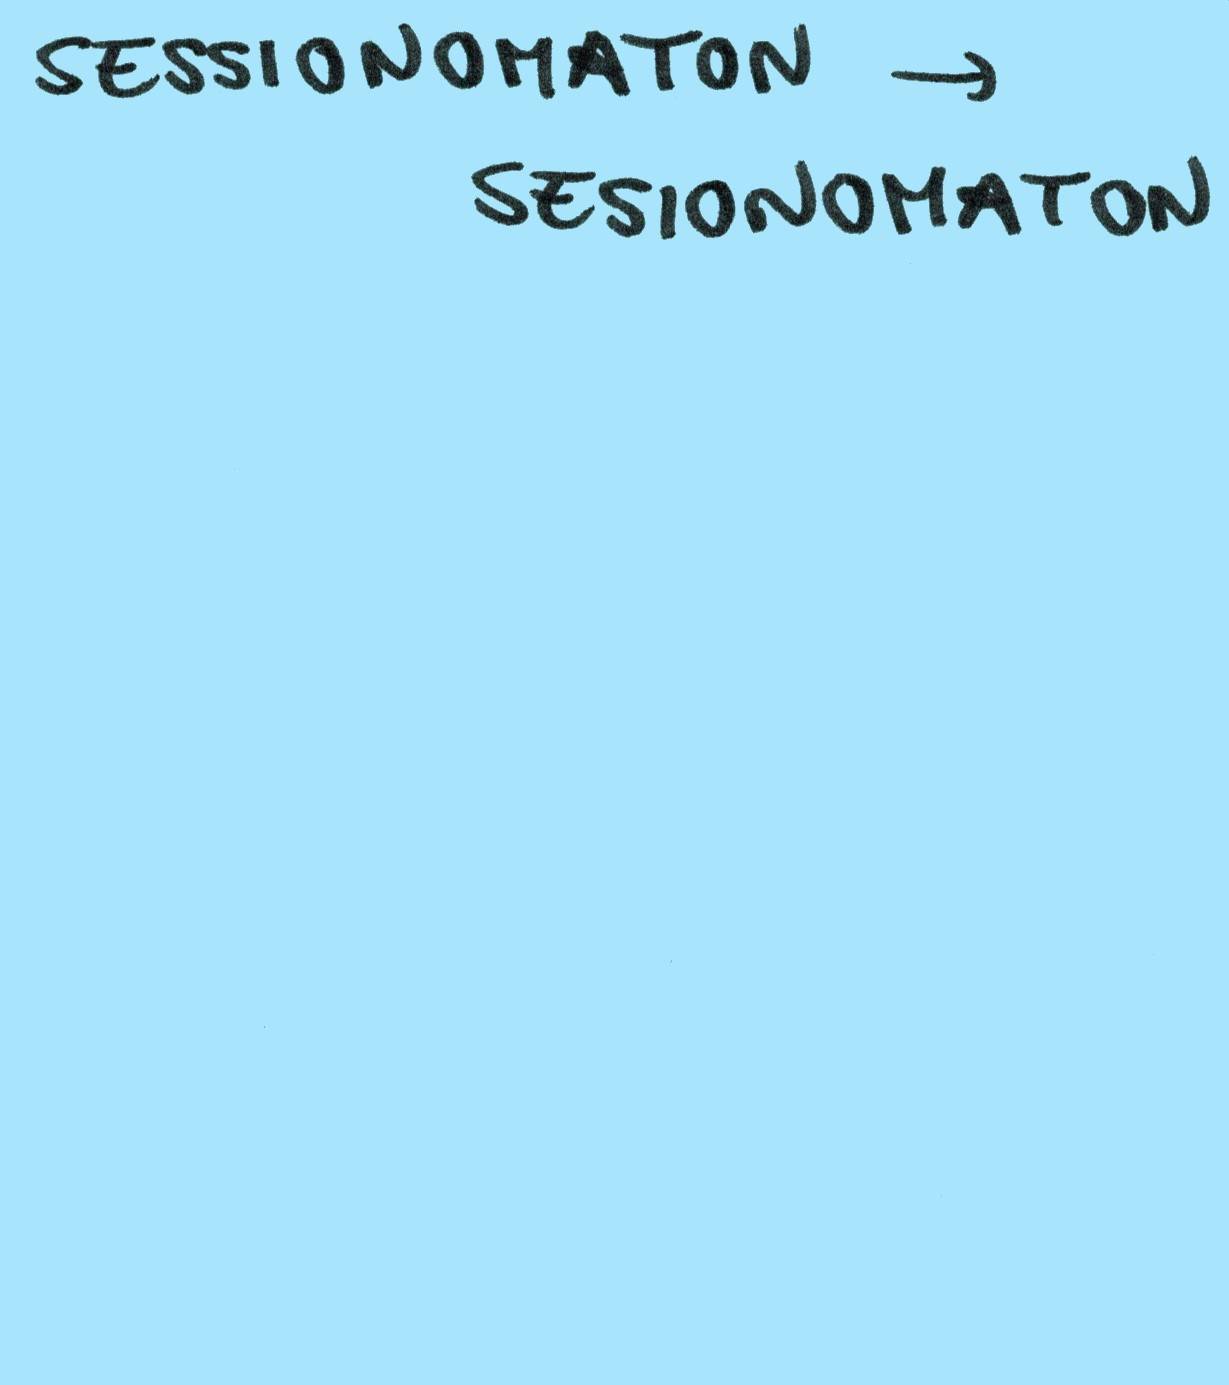 SESSIONOMATON →
SESIONOMATON